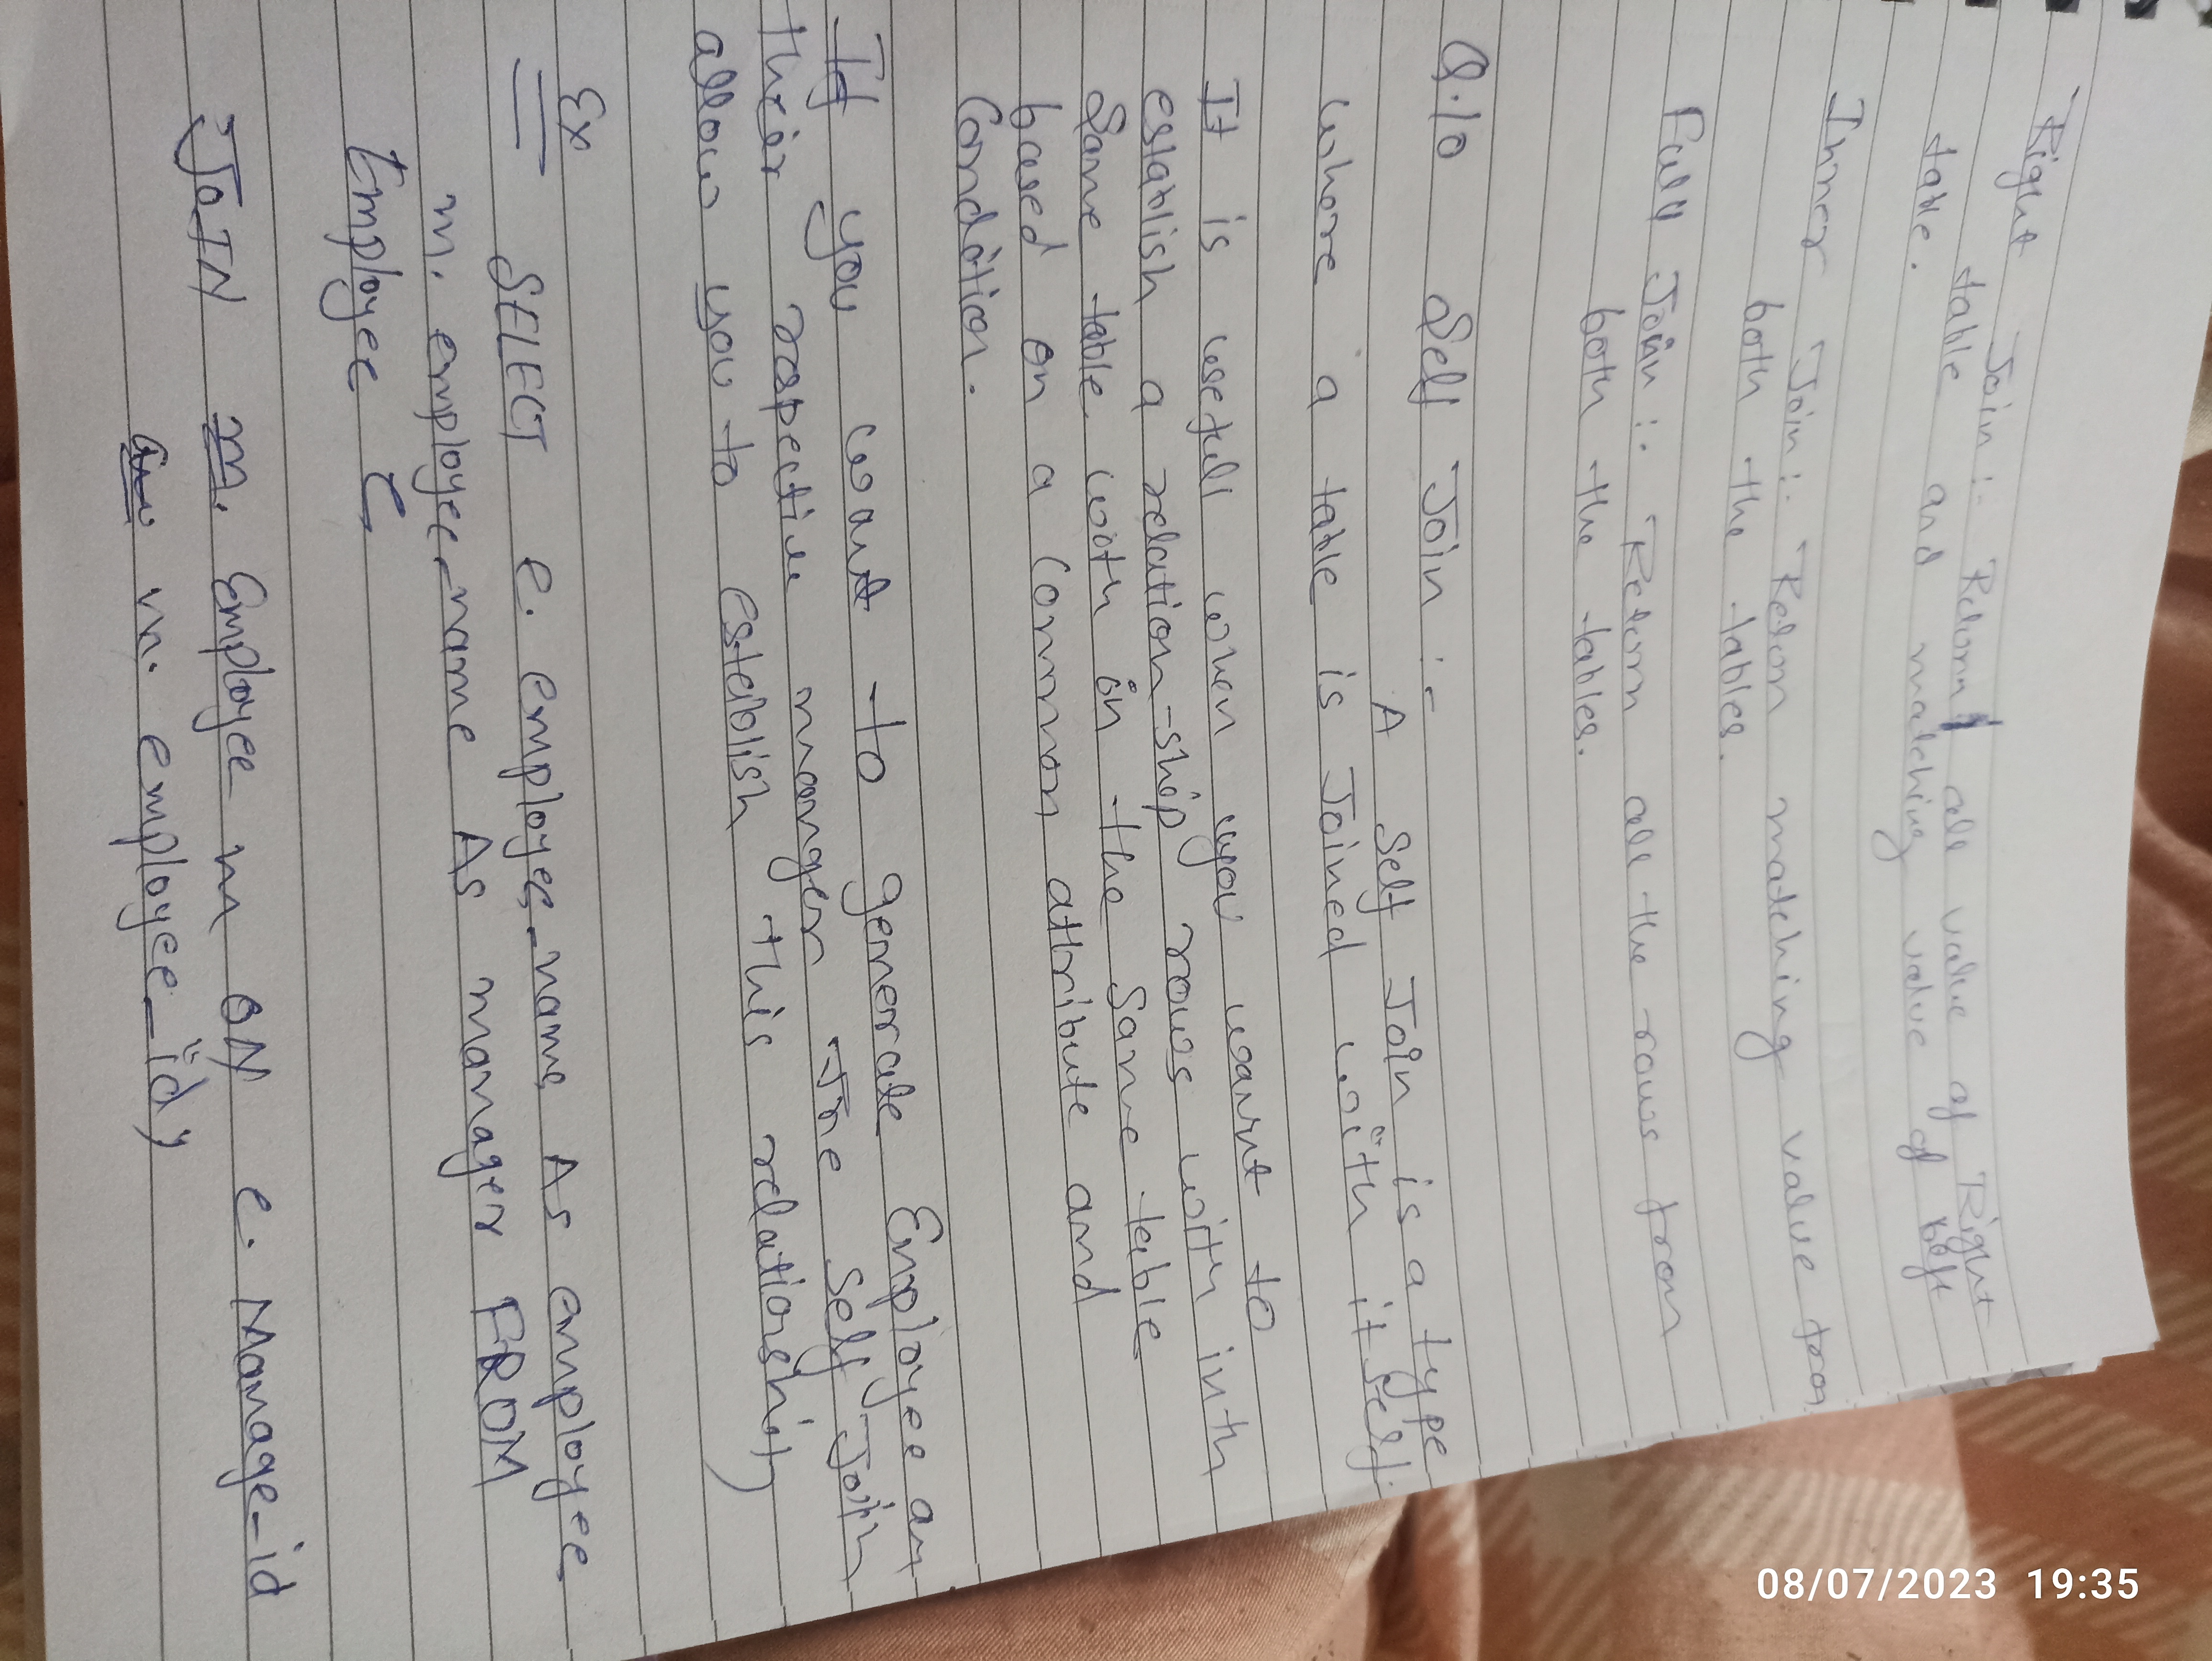 Right Join :- Return all value of Right
table and matching value of left
table.
Inner Join :- Return matching value from
both the tables.
Full Join :- Return all the rows from
both the tables.
Q.10 Self Join :-
A Self Join is a type
where a table is Joined with it self.
It is usefull when you want to
establish a relation-ship rows with in th
Same table with in the Same table
based on a Common attribute and
Condition.
If you want to generate Employee an
their respective manger The Self Join
allow you to establish this relationship
Ex SELECT e. employee_name As employee
m. employee_name As manager FROM
Employee e
JOIN m. Employee m ON e. Manage_id
m. employee_id;
08/07/2023 19:35